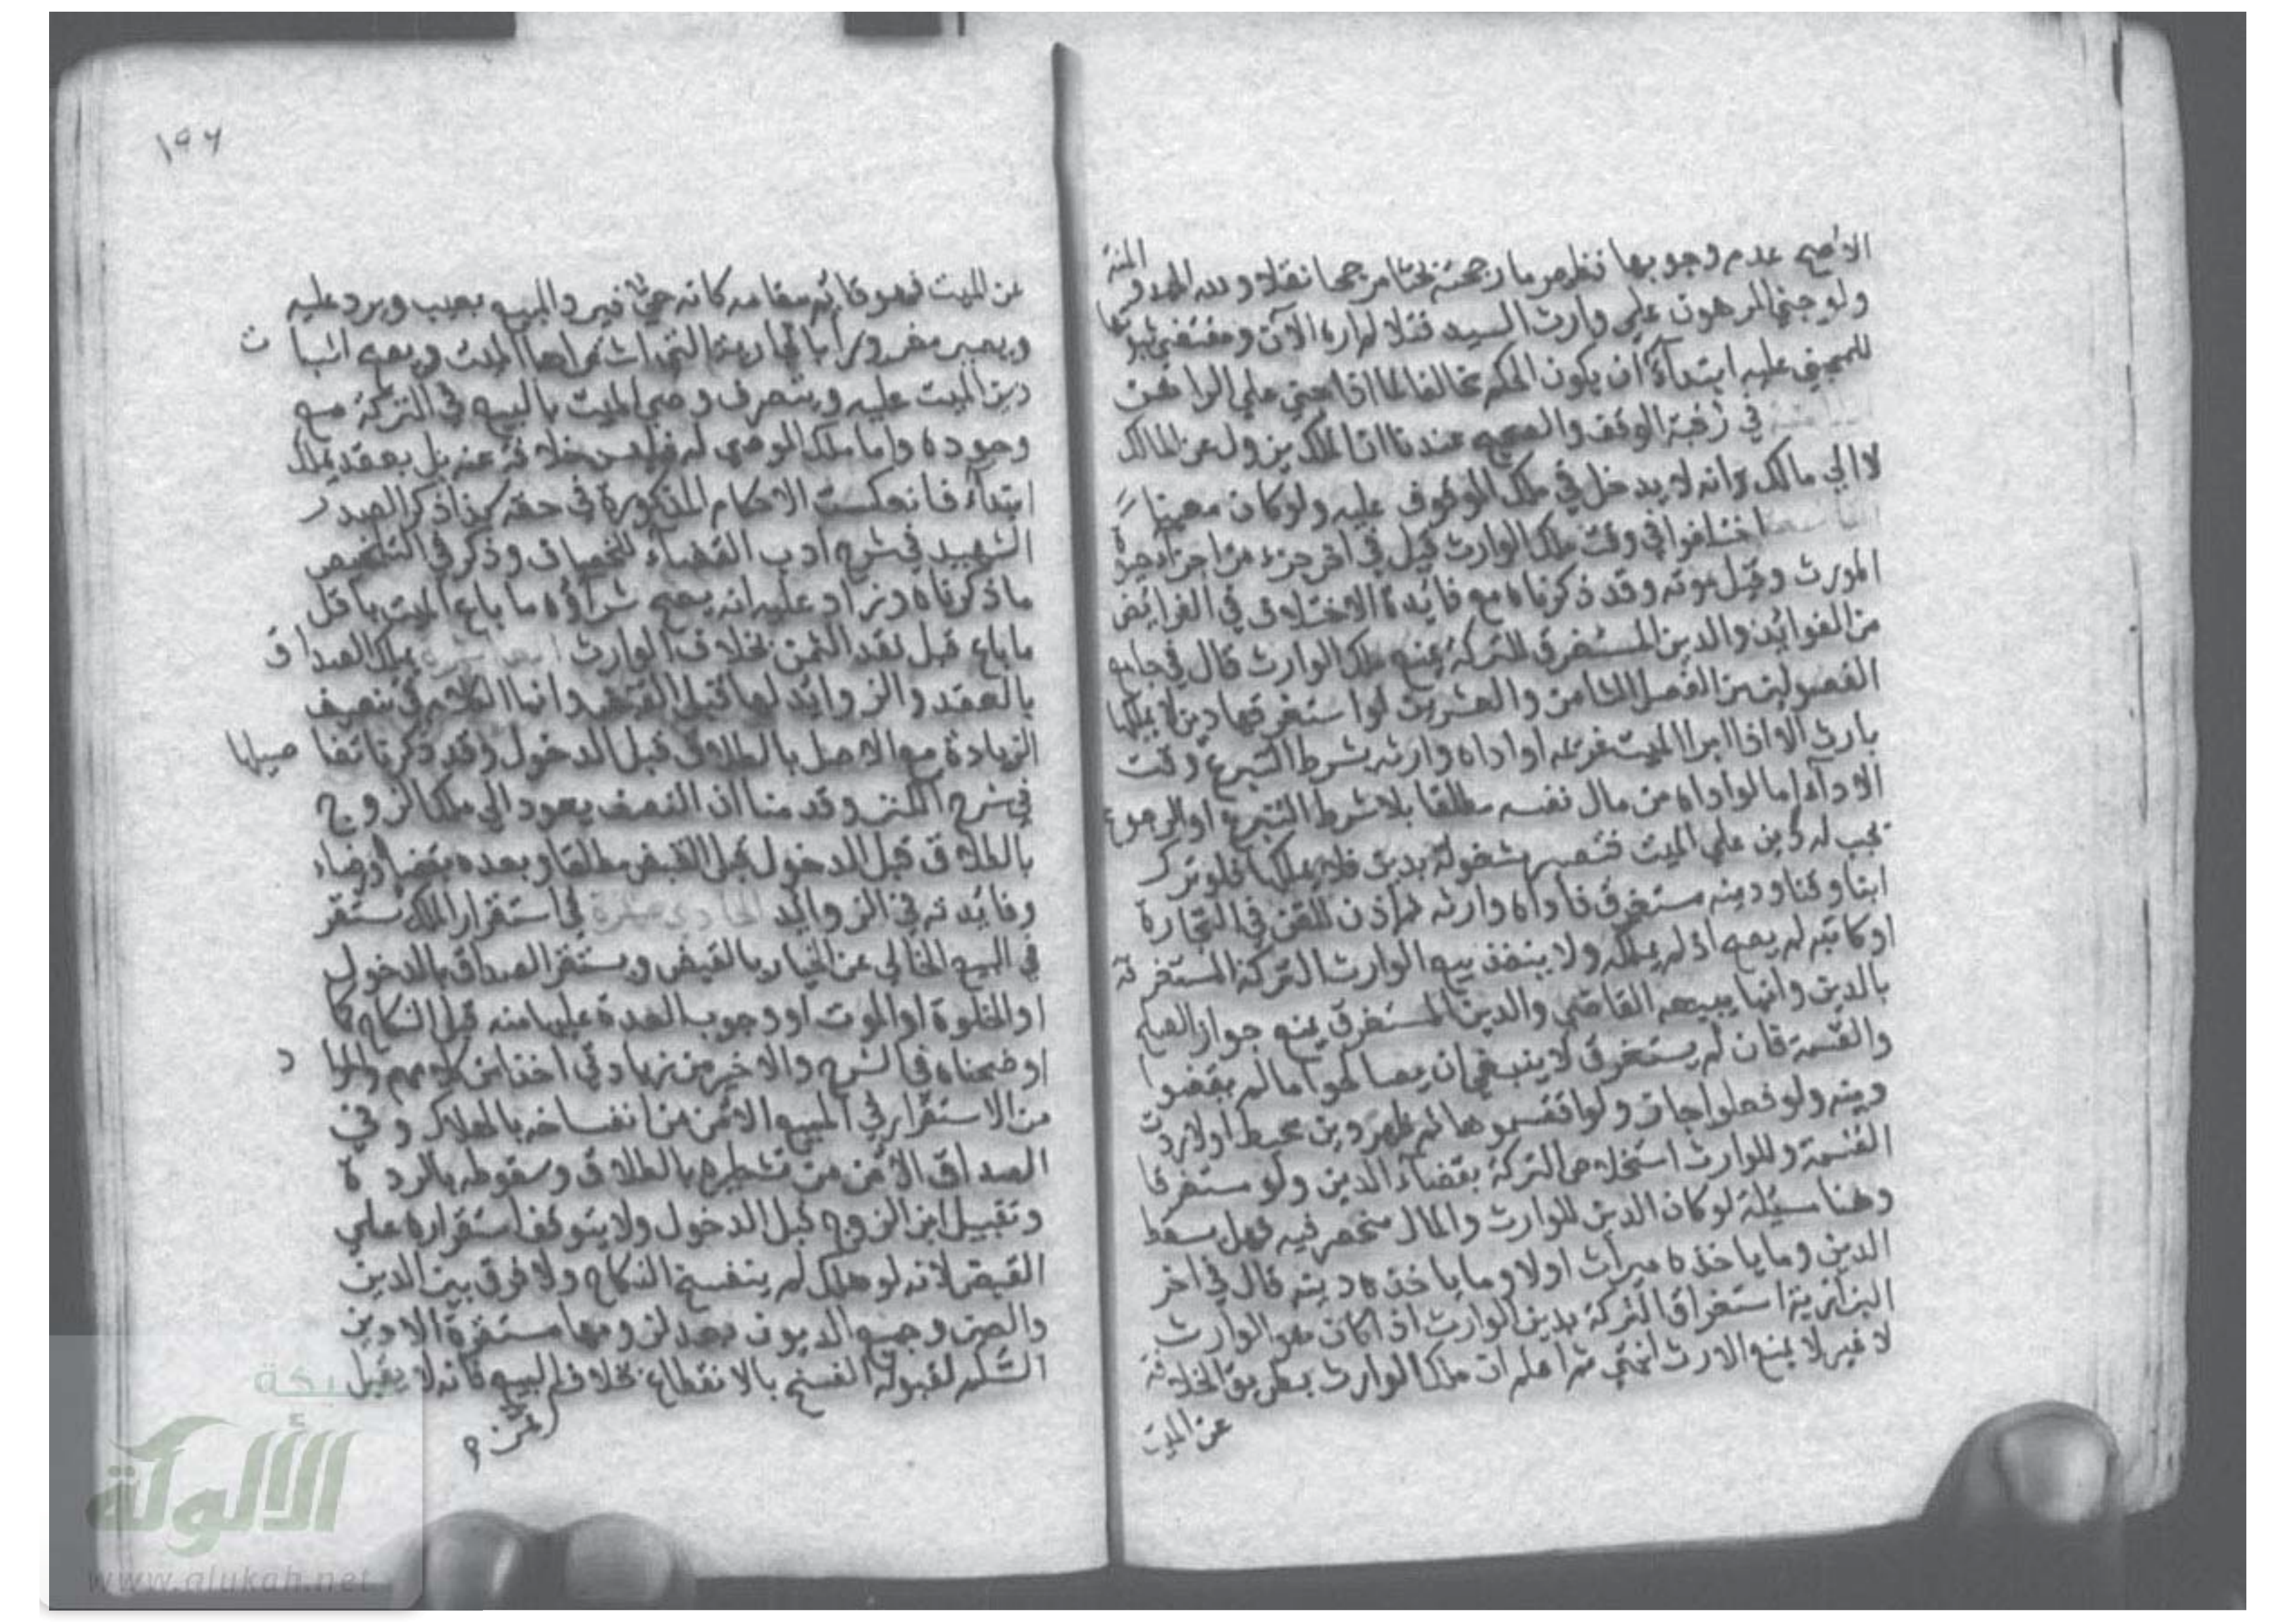 الاصح عدم وجوبها فظهر ما رجحته بحثا مرجحا نقلا ولله الحمد والمنة
ولو جني المرهون علي وارث السيد فتلا لم اره الآن ومقتضي ثبوتها
للمجني عليه ابتداء ان يكون الحكم مخالفا لما اذا جني علي الراهن
في رقبة الوقف والصحيح عندنا ان الملك يزول عن المالك
لا الي مالك وانه لا يدخل في ملك الموقوف عليه ولو كان معينا
التاسعة اختلفوا في وقت ملك الوارث قيل في اخر جزء من اجزاء حيوة
المورث وقيل بموته وقد ذكرناه مع فائدة الاختلاف في الفرائض
من الفوائد والدين المستغرق للتركة يمنع ملك الوارث قال في جامع
الفصولين من الفصل الثامن والعشرين لو استغرقها دين لا يملكها
بارث الا اذا ابرا الميت غريمه او اداه وارثه بشرط التبرع وقت
الاداء اما لو اداه من مال نفسه مطلقا بلا شرط التبرع او الرجوع
يجب له دين علي الميت فتصير مشغولة بدين فلا يملكها فلو ترك
ابنا وقنا ودينه مستغرق فاداه وارثه ثم اذن للقن في التجارة
او كاتبه لم يصح اذ لم يملكه ولا ينفذ بيع الوارث التركة المستغرقة
بالدين وانما يبيعه القاضي والدين المستغرق يمنع جواز الصلح
والقسمة فان لم يستغرق لا ينبغي ان يصالحوا ما لم يقضوا
دينه ولو فعلوا جاز ولو اقتسموها ثم ظهر دين محيط اولا ردت
القسمة وللوارث استخلاص التركة بقضاء الدين ولو مستغرقا
وهنا مسئلة لو كان الدين للوارث والمال منحصر فيه فهل يسقط
الدين وما ياخذه ميراث اولا وما ياخذه دينه قال في اخر
البزازية استغراق التركة بدين الوارث اذا كان هو الوارث
لا غير لا يمنع الارث انتهي ثم اعلم ان ملك الوارث بطريق الخلافة
عن الميت
١٩٦
عن الميت فهو قائم مقامه كانه حي فيرد المبيع بعيب ويرد عليه
ويصير مغرورا بالجارية التي اشتراها الميت ويصح اثبات
دين الميت عليه ويتصرف وصي الميت بالبيع في التركة مع
وجوده واما ملك الموصي له فليس خلافة عنه بل بعقد يملك
ابتداء فانعكست الاحكام المذكورة في حقه كذا ذكر الصدر
الشهيد في شرح ادب القضاء للخصاف وذكر في التلخيص
ما ذكرناه وزاد عليه انه يصح شراؤه ما باع الميت باقل
ما باع قبل نقد الثمن بخلاف الوارث يملك الصداق
بالعقد والزوائد لها قبل القبض وانما الكلام في تنصيف
الزيادة مع الاصل بالطلاق قبل الدخول وقد ذكرنا تفاصيلها
في شرح الكنز وقدمنا ان النصف يعود الي ملك الزوج
بالطلاق قبل الدخول قبل القبض مطلقا وبعده بقضا او رضاء
وفائدته في الزوائد الحادي عشرة في استقرار الملك يستقر
في البيع الخالي عن الخيار بالقبض ويستقر الصداق بالدخول
او الخلوة او الموت او وجوب العدة عليها منه قبل النكاح كما
اوضحناه في الشرح والاخير من زيادتي اخذا من كلامهم والمراد
من الاستقرار في المبيع الامن من انفساخه بالهلاك وفي
الصداق الامن من تشطيره بالطلاق وسقوطه بالردة
وتقبيل ابن الزوج قبل الدخول ولا يتوقف استقراره علي
القبض لانه لو هلك لم ينفسخ النكاح ولا فرق بين الدين
والعين وجميع الديون بعد لزومها مستقرة الا دين
السلم لقبوله الفسخ بالانقطاع بخلاف ثمن المبيع فانه لا يقبل
شبكة
الألوكة
www.alukah.net